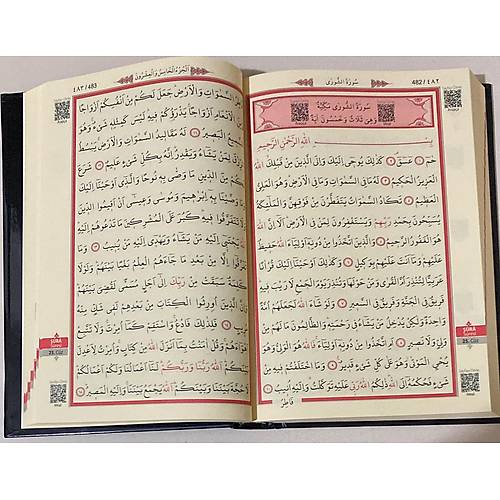 482 / ٤٨٢
سُورَةُ الشُّورٰى
سُورَةُ الشُّورٰى مَكِّيَّةٌ
وَهِيَ ثَلَاثٌ وَخَمْسُونَ اٰيَةً
بِسْمِ اللّٰهِ الرَّحْمٰنِ الرَّحِيمِ
حٰمٓ ﴿١﴾ عٓسٓقٓ ﴿٢﴾ كَذٰلِكَ يُوحِٓي اِلَيْكَ وَاِلَى الَّذِينَ مِنْ قَبْلِكَ اللّٰهُ
الْعَزِيزُ الْحَكِيمُ ﴿٣﴾ لَهُ مَا فِي السَّمٰوَاتِ وَمَا فِي الْاَرْضِ وَهُوَ الْعَلِيُّ
الْعَظِيمُ ﴿٤﴾ تَكَادُ السَّمٰوَاتُ يَتَفَطَّرْنَ مِنْ فَوْقِهِنَّ وَالْمَلٰٓئِكَةُ
يُسَبِّحُونَ بِحَمْدِ رَبِّهِمْ وَيَسْتَغْفِرُونَ لِمَنْ فِي الْاَرْضِ اَلَٓا اِنَّ اللّٰهَ
هُوَ الْغَفُورُ الرَّحِيمُ ﴿٥﴾ وَالَّذِينَ اتَّخَذُوا مِنْ دُونِهِٓ اَوْلِيَٓاءَ اللّٰهُ حَفِيظٌ
عَلَيْهِمْ وَمَٓا اَنْتَ عَلَيْهِمْ بِوَكِيلٍ ﴿٦﴾ وَكَذٰلِكَ اَوْحَيْنَٓا اِلَيْكَ قُرْاٰنًا
عَرَبِيًّا لِتُنْذِرَ اُمَّ الْقُرٰى وَمَنْ حَوْلَهَا وَتُنْذِرَ يَوْمَ الْجَمْعِ لَا رَيْبَ فِيهِ
فَرِيقٌ فِي الْجَنَّةِ وَفَرِيقٌ فِي السَّعِيرِ ﴿٧﴾ وَلَوْ شَٓاءَ اللّٰهُ لَجَعَلَهُمْ اُمَّةً
وَاحِدَةً وَلٰكِنْ يُدْخِلُ مَنْ يَشَٓاءُ فِي رَحْمَتِهِ وَالظَّالِمُونَ مَا لَهُمْ مِنْ
وَلِيٍّ وَلَا نَصِيرٍ ﴿٨﴾ اَمِ اتَّخَذُوا مِنْ دُونِهِٓ اَوْلِيَٓاءَ فَاللّٰهُ هُوَ الْوَلِيُّ وَهُوَ
يُحْيِ الْمَوْتٰى وَهُوَ عَلٰى كُلِّ شَيْءٍ قَدِيرٌ ﴿٩﴾ وَمَا اخْتَلَفْتُمْ فِيهِ مِنْ
شَيْءٍ فَحُكْمُهُٓ اِلَى اللّٰهِ ذٰلِكُمُ اللّٰهُ رَبِّي عَلَيْهِ تَوَكَّلْتُ وَاِلَيْهِ اُنِيبُ ﴿١٠﴾
فَاطِرُ
ŞÛRÂ
Sûresi
25. Cüz
483 / ٤٨٣
اَلْجُزْءُ الْخَامِسُ وَالْعِشْرُونَ
فَاطِرُ السَّمٰوَاتِ وَالْاَرْضِ جَعَلَ لَكُمْ مِنْ اَنْفُسِكُمْ اَزْوَاجًا
وَمِنَ الْاَنْعَامِ اَزْوَاجًا يَذْرَؤُكُمْ فِيهِ لَيْسَ كَمِثْلِهِ شَيْءٌ وَهُوَ
السَّمِيعُ الْبَصِيرُ ﴿١١﴾ لَهُ مَقَالِيدُ السَّمٰوَاتِ وَالْاَرْضِ يَبْسُطُ
الرِّزْقَ لِمَنْ يَشَٓاءُ وَيَقْدِرُ اِنَّهُ بِكُلِّ شَيْءٍ عَلِيمٌ ﴿١٢﴾ شَرَعَ
لَكُمْ مِنَ الدِّينِ مَا وَصّٰى بِهِ نُوحًا وَالَّذِٓي اَوْحَيْنَٓا اِلَيْكَ
وَمَا وَصَّيْنَا بِهِٓ اِبْرٰهِيمَ وَمُوسٰى وَعِيسٰٓى اَنْ اَقِيمُوا الدِّينَ
وَلَا تَتَفَرَّقُوا فِيهِ كَبُرَ عَلَى الْمُشْرِكِينَ مَا تَدْعُوهُمْ اِلَيْهِ
اَللّٰهُ يَجْتَبِٓي اِلَيْهِ مَنْ يَشَٓاءُ وَيَهْدِٓي اِلَيْهِ مَنْ يُنِيبُ ﴿١٣﴾ وَمَا
تَفَرَّقُٓوا اِلَّا مِنْ بَعْدِ مَا جَٓاءَهُمُ الْعِلْمُ بَغْيًا بَيْنَهُمْ وَلَوْلَا
كَلِمَةٌ سَبَقَتْ مِنْ رَبِّكَ اِلٰٓى اَجَلٍ مُسَمًّى لَقُضِيَ بَيْنَهُمْ
وَاِنَّ الَّذِينَ اُورِثُوا الْكِتَابَ مِنْ بَعْدِهِمْ لَفِي شَكٍّ مِنْهُ
مُرِيبٍ ﴿١٤﴾ فَلِذٰلِكَ فَادْعُ وَاسْتَقِمْ كَمَٓا اُمِرْتَ وَلَا تَتَّبِعْ
اَهْوَٓاءَهُمْ وَقُلْ اٰمَنْتُ بِمَٓا اَنْزَلَ اللّٰهُ مِنْ كِتَابٍ وَاُمِرْتُ لِاَعْدِلَ
بَيْنَكُمْ اَللّٰهُ رَبُّنَا وَرَبُّكُمْ لَنَٓا اَعْمَالُنَا وَلَكُمْ اَعْمَالُكُمْ
لَا حُجَّةَ بَيْنَنَا وَبَيْنَكُمْ اَللّٰهُ يَجْمَعُ بَيْنَنَا وَاِلَيْهِ الْمَصِيرُ ﴿١٥﴾
ŞÛRÂ
Sûresi
25. Cüz